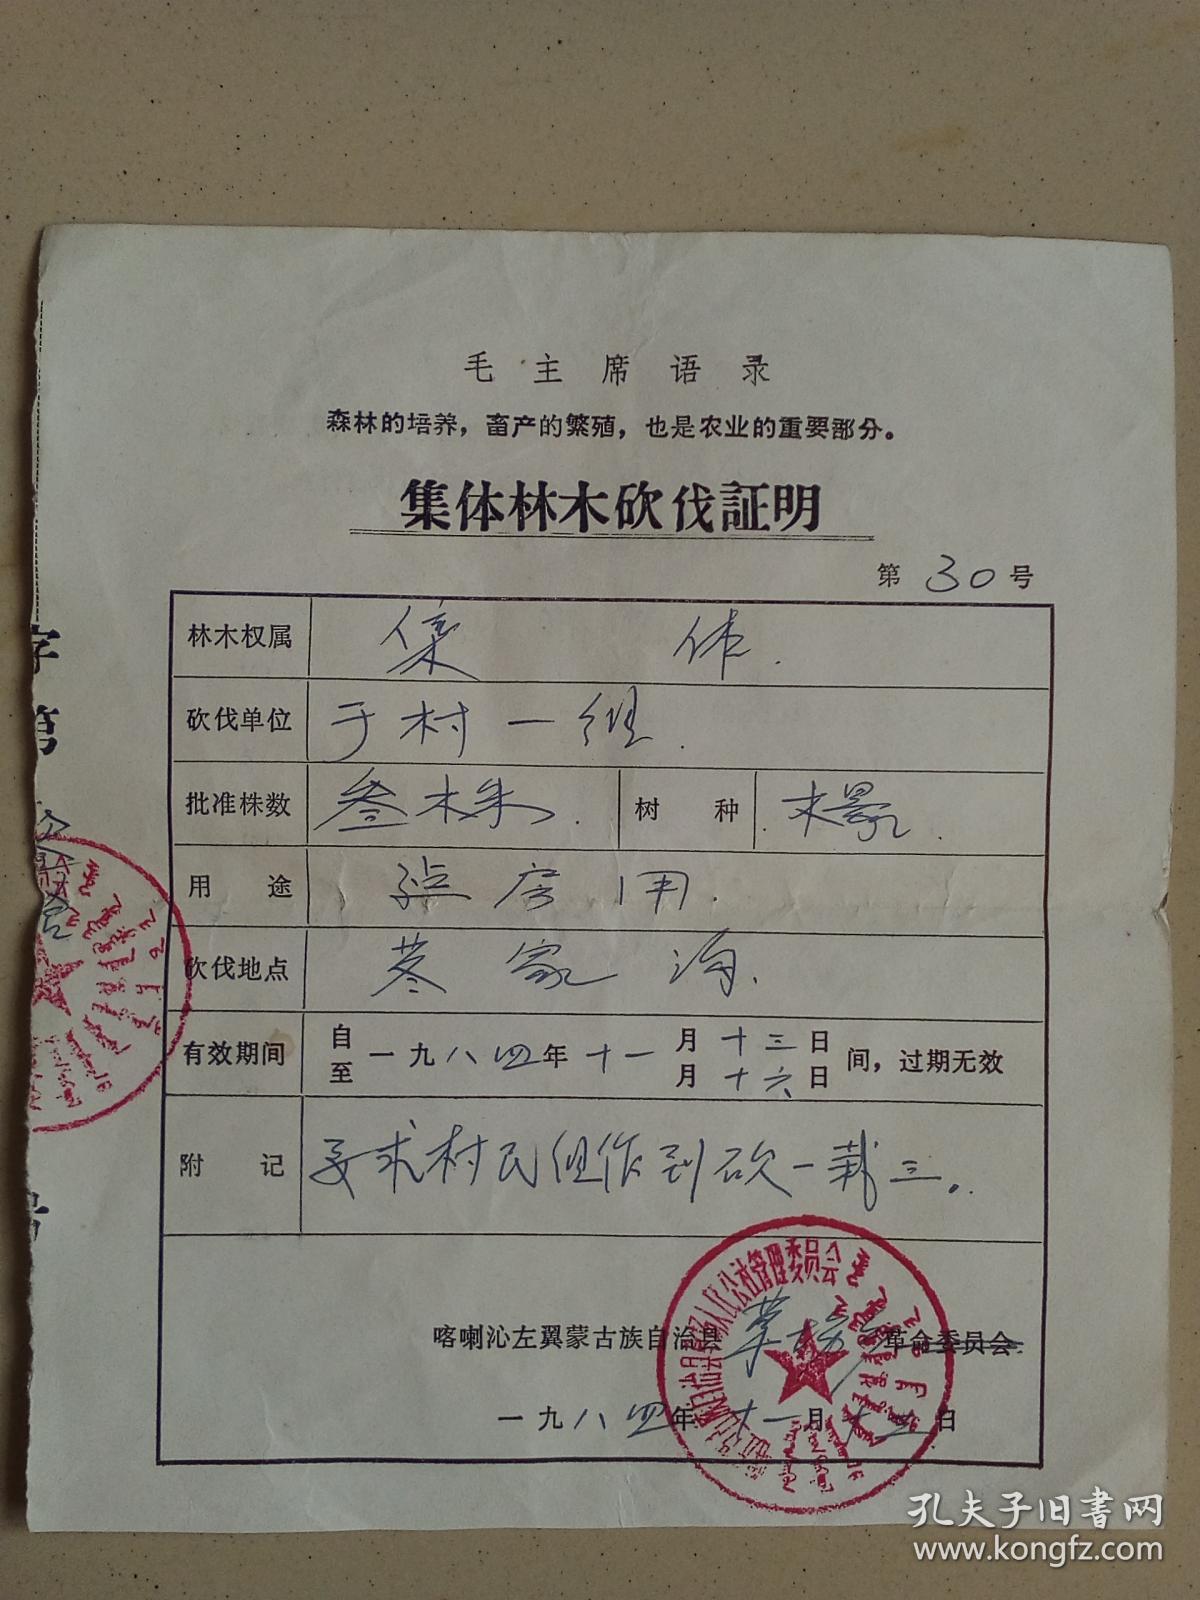 毛主席语录
森林的培养，畜产的繁殖，也是农业的重要部分。
集体林木砍伐証明
第 30 号
林木权属 集 体.
砍伐单位 于村一组.
批准株数 叁株. 树 种
用 途 房用.
砍伐地点 家沟.
有效期间 自至一九八四年十一月十三日月十六日间，过期无效
附 记 要求村民组作到砍一栽三。
喀喇沁左翼蒙古族自治县 草场 革命委员会
一九八四年十一月十三日
字第
号
人民公社管理委员会
孔夫子旧书网
www.kongfz.com